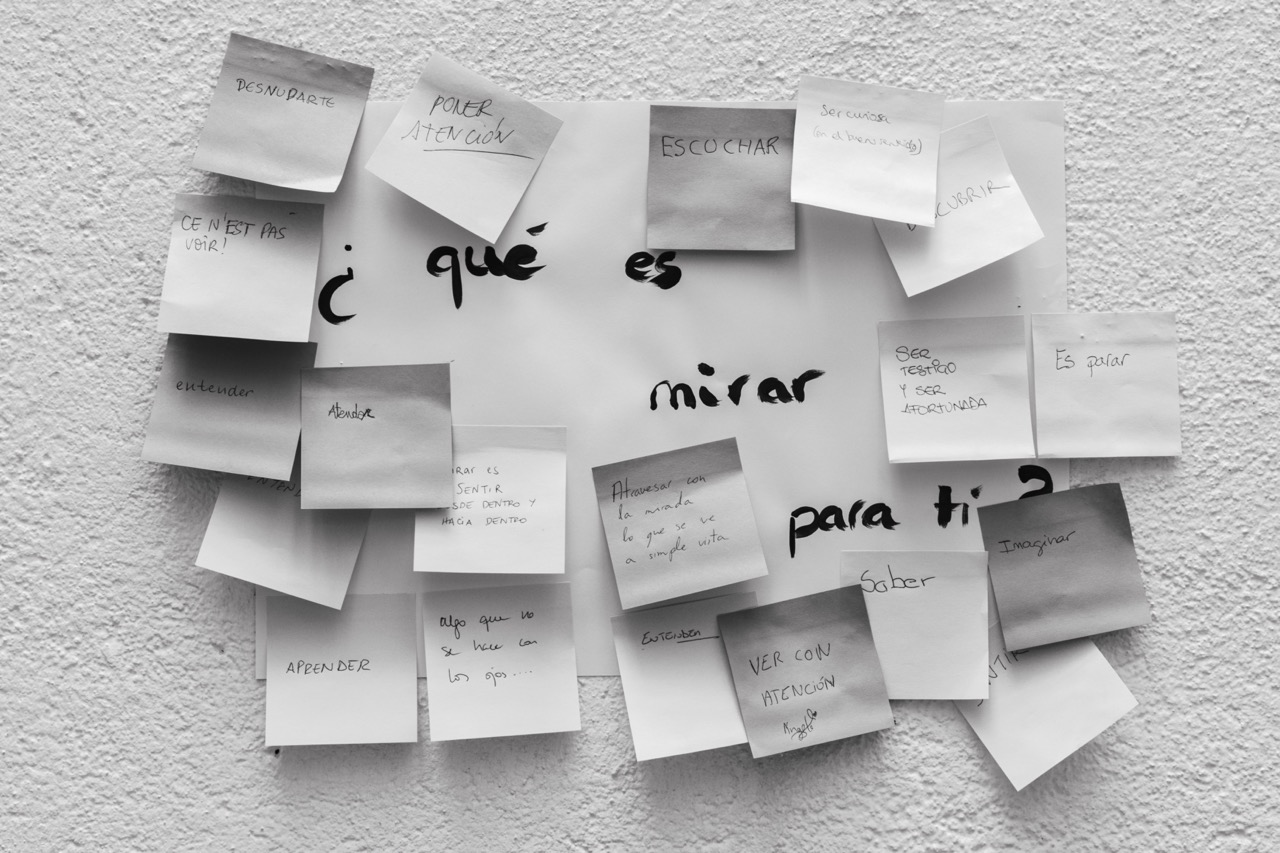 DESNUDARTE
PONER
ATENCIÓN
ESCUCHAR
Ser curiosa
(en el buen sentido)
CUBRIR
CE N'EST PAS
VOIR!
¿ qué es
mirar
para ti ?
SER
TESTIGO
Y SER
AFORTUNADA
Es parar
entender
Atender
RAR es
SENTIR
SDE DENTRO Y
HACIA DENTRO
Atravesar con
la mirada
lo que se ve
a simple vista
Imaginar
Saber
APRENDER
algo que no
se hace con
los ojos....
ENTENDER
VER CON
ATENCIÓN